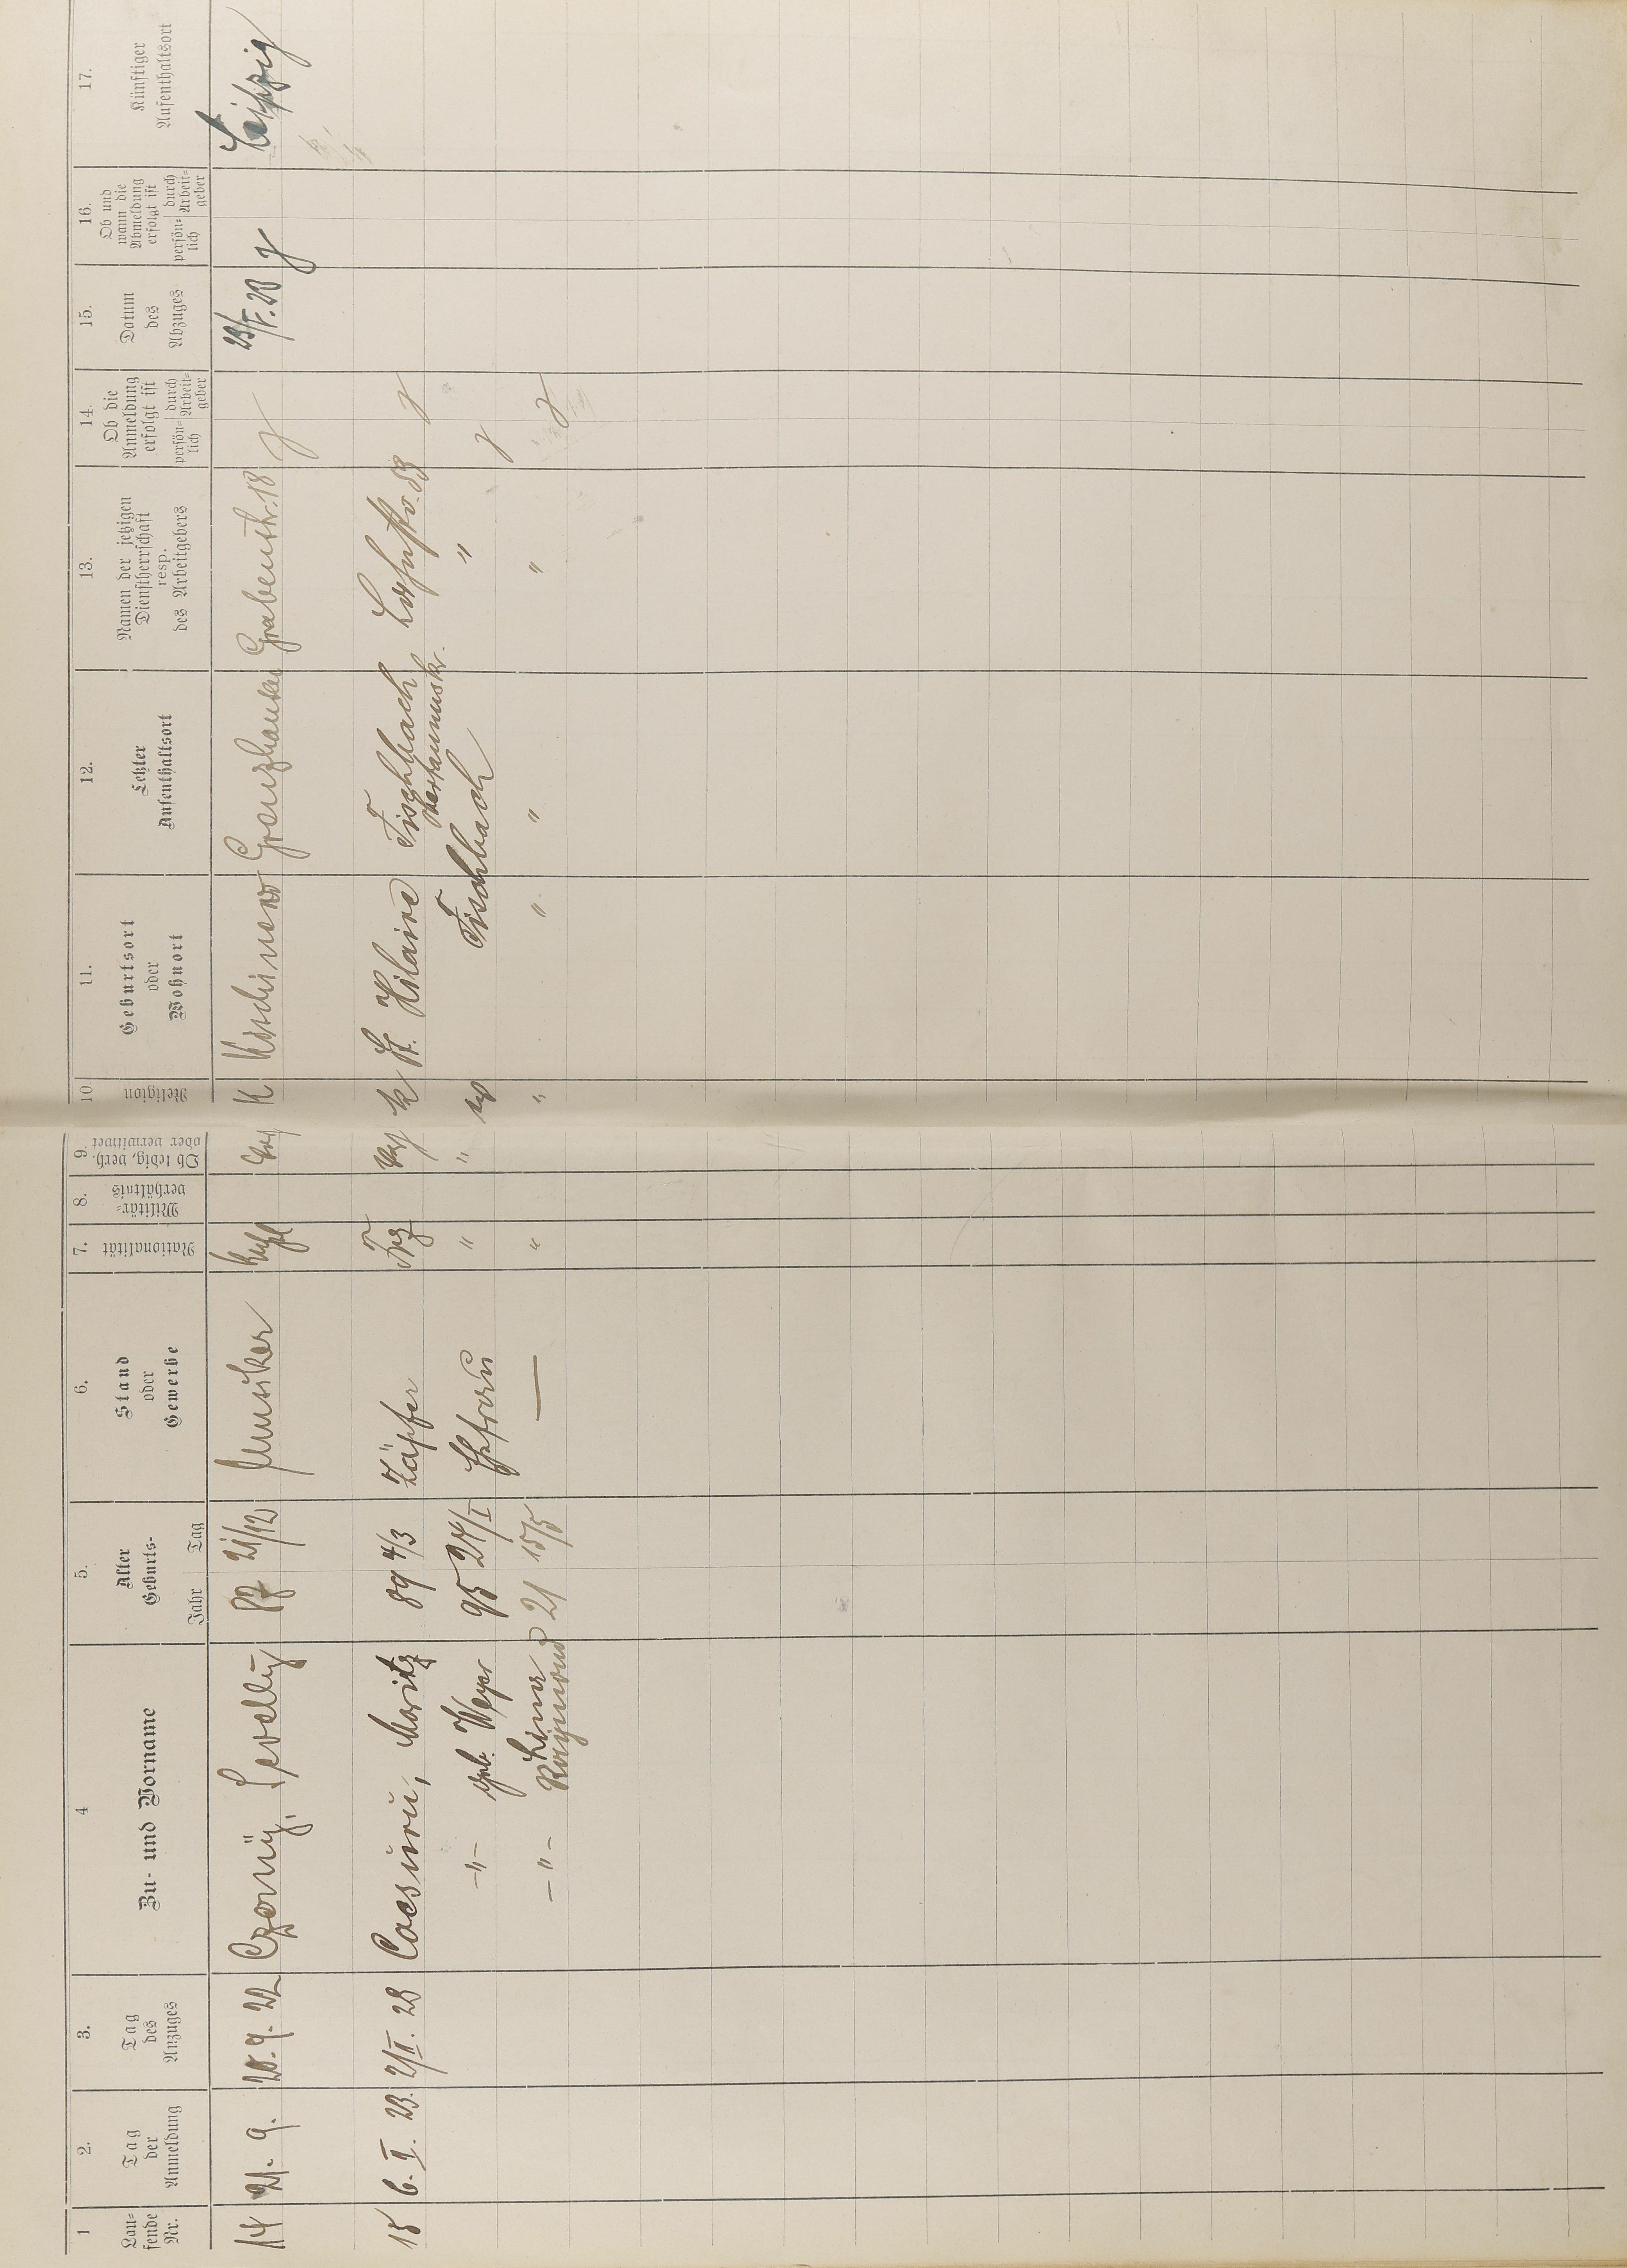 1
Lau=
fende
Nr.
2.
Tag
der
Anmeldung
3.
Tag
des
Anzuges
4
Zu- und Vorname
5.
Alter
Geburts-
Jahr Tag
6.
Stand
oder
Gewerbe
7.
Nationalität
8.
Militär=
verhältnis
9.
Ob ledig, verh.
oder verwitwet
10
Religion
11.
Geburtsort
oder
Wohnort
12.
Letzter
Aufenthaltsort
13.
Namen der jetzigen
Dienstherrschaft
resp.
des Arbeitgebers
14.
Ob die
Anmeldung
erfolgt ist
persön=
lich
durch
Arbeit=
geber
15.
Datum
des
Abzuges
16.
Ob und
wann die
Abmeldung
erfolgt ist
persön=
lich
durch
Arbeit=
geber
17.
Künftiger
Aufenthaltsort
14 21. 9. 20. 9. 22 21/12 Musiker K Kischinew Grenzhausen Grabenstr. 18 Leipzig
15 6. II. 23. 2/II. 23 Moritz 89 4/3 Zäpfer Frz k St. Hilaire Fischbach
Obertaunuskr.
-"- geb. Weyer 95 24/I Ehefrau " " Fischbach "
Lina
-"- Raymond 21 15/5 — " " " " "